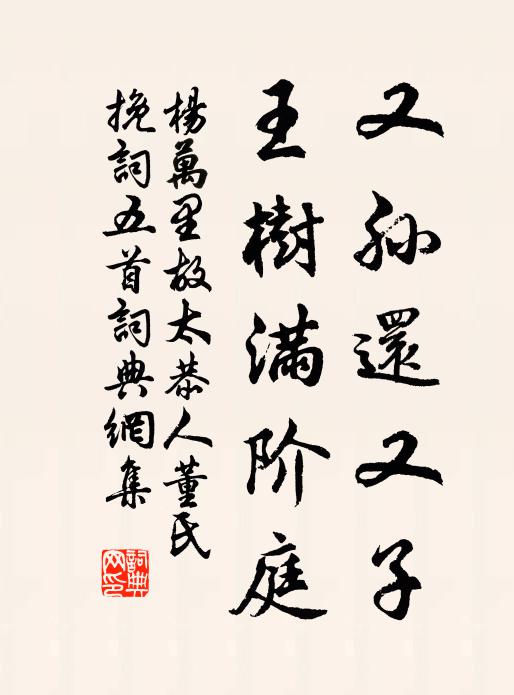 又孙還又子
王樹满阶庭
楊萬里故太恭人董氏
挽詞五首詞典網集
詞典
网印